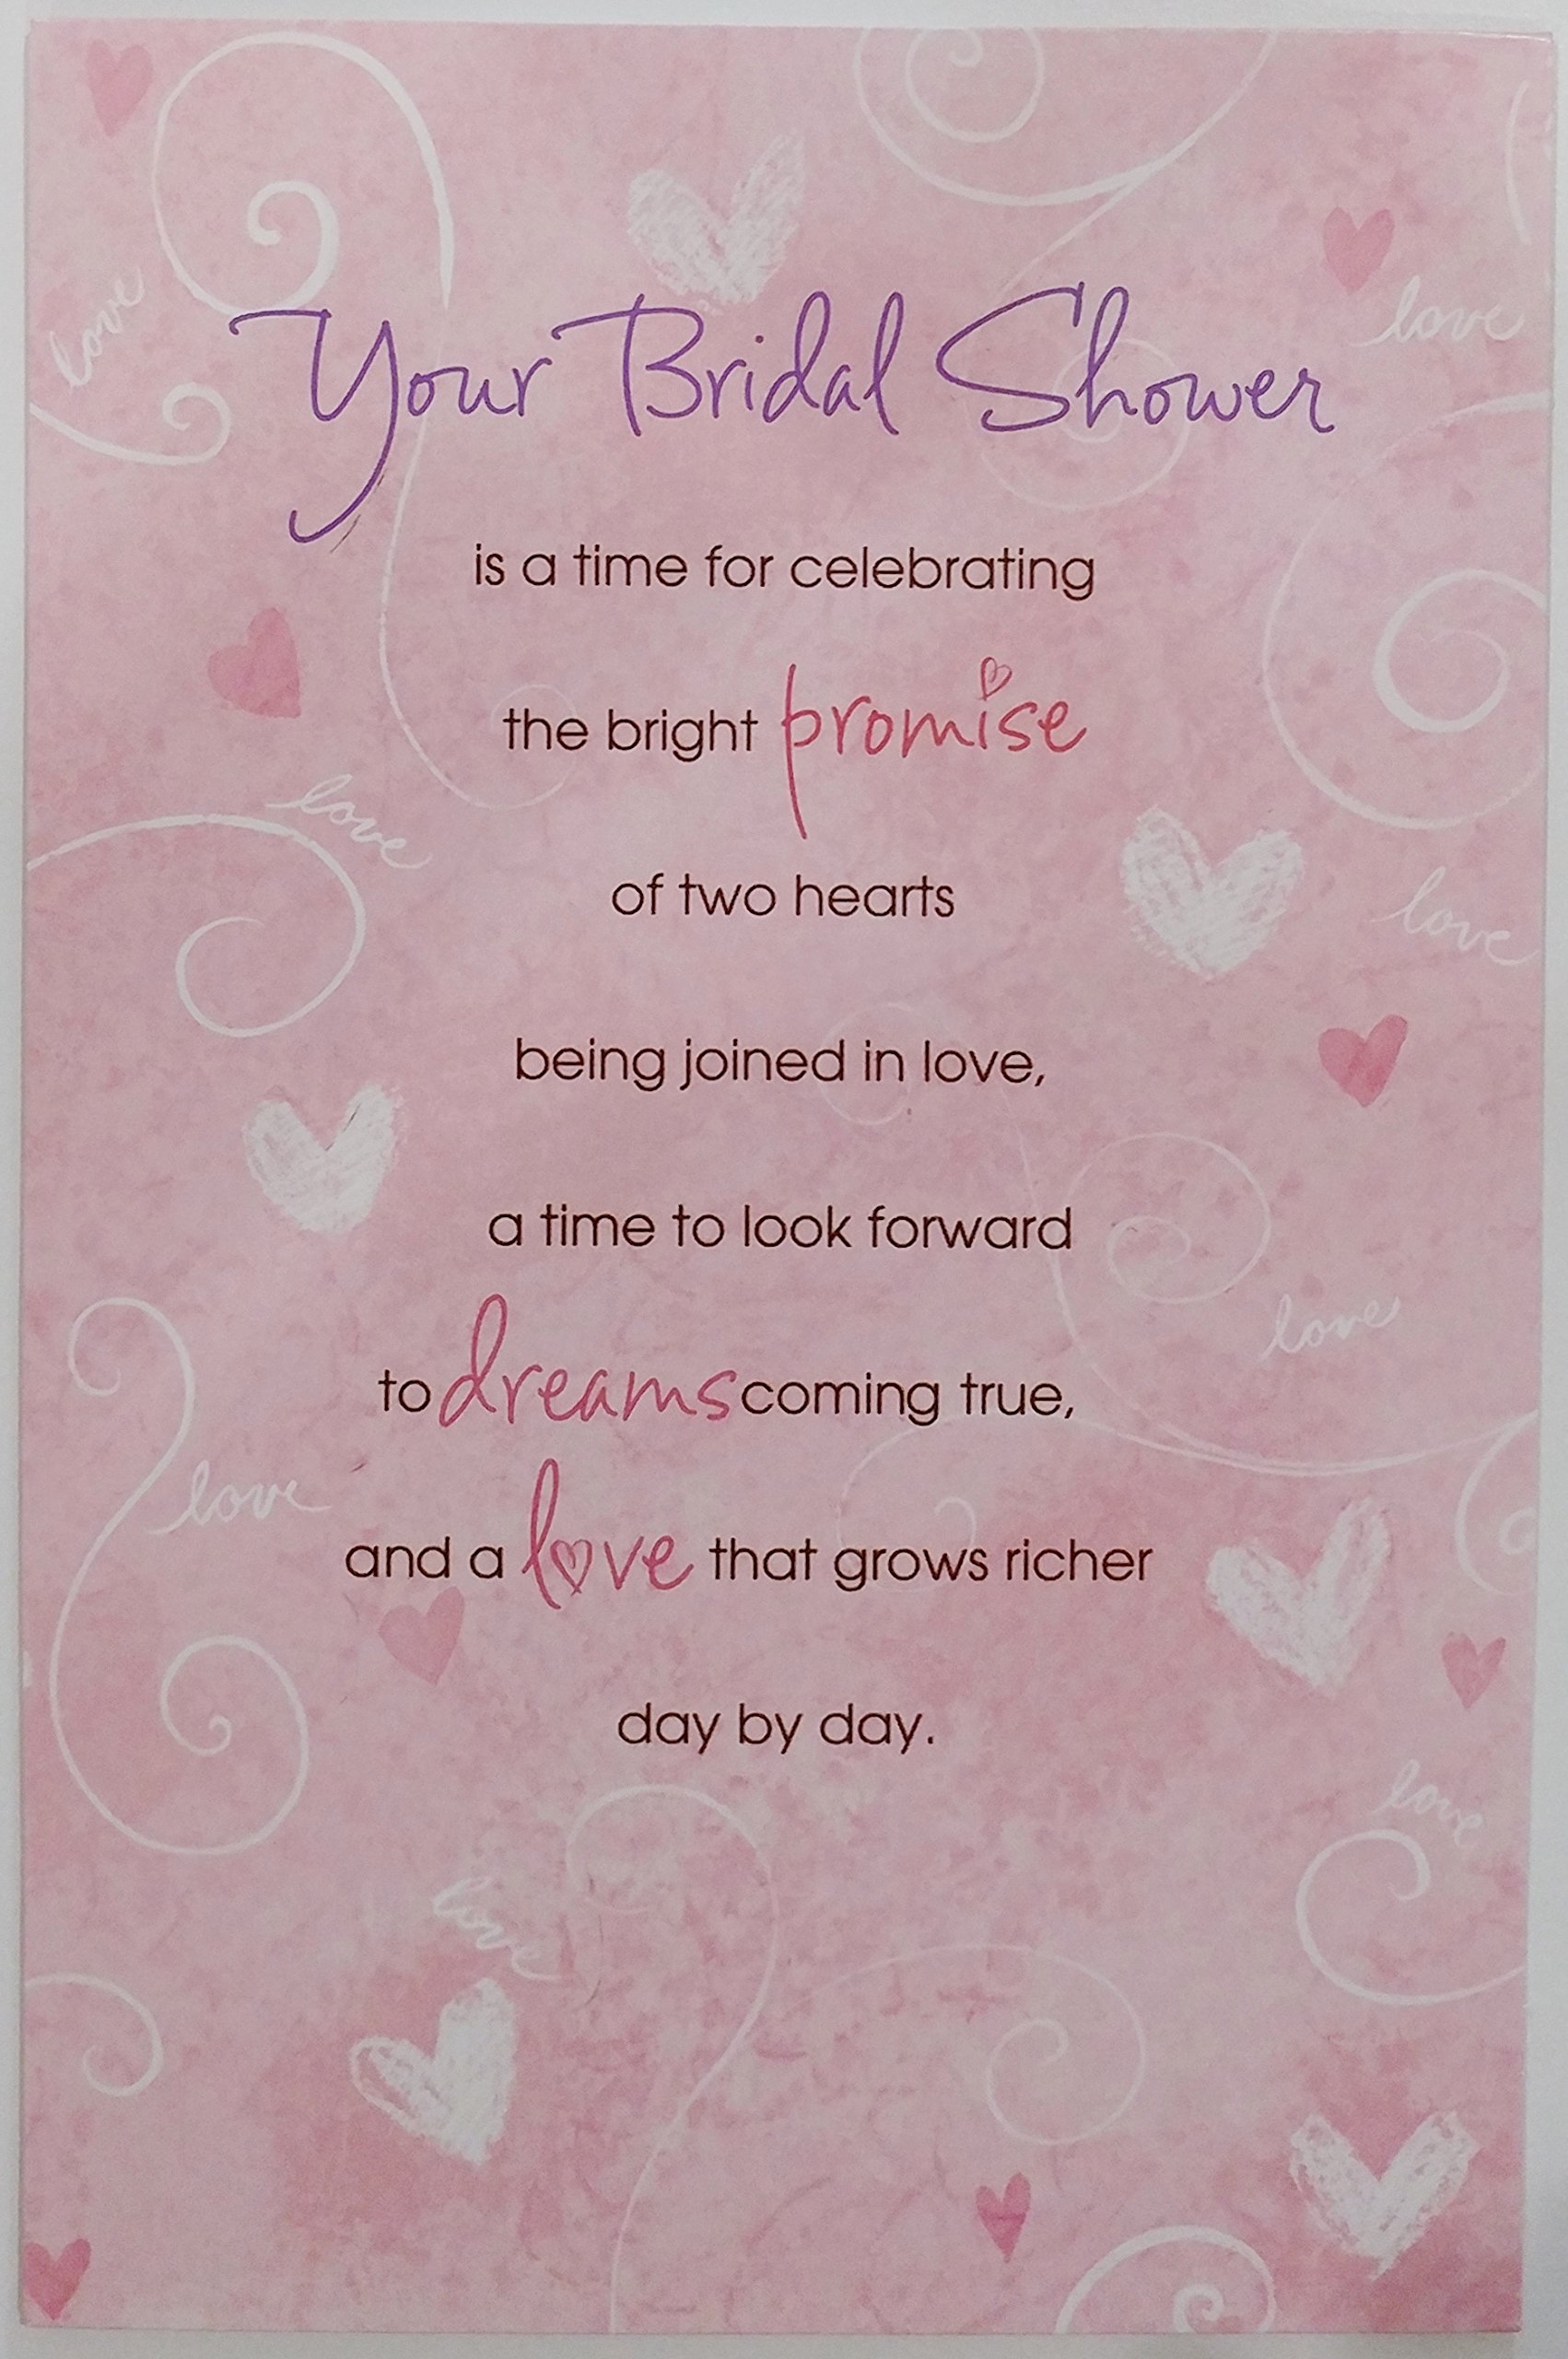 love
love
Your Bridal Shower
is a time for celebrating
the bright promise
love
of two hearts
love
being joined in love,
a time to look forward
love
to dreams coming true,
love
and a love that grows richer
day by day.
love
love